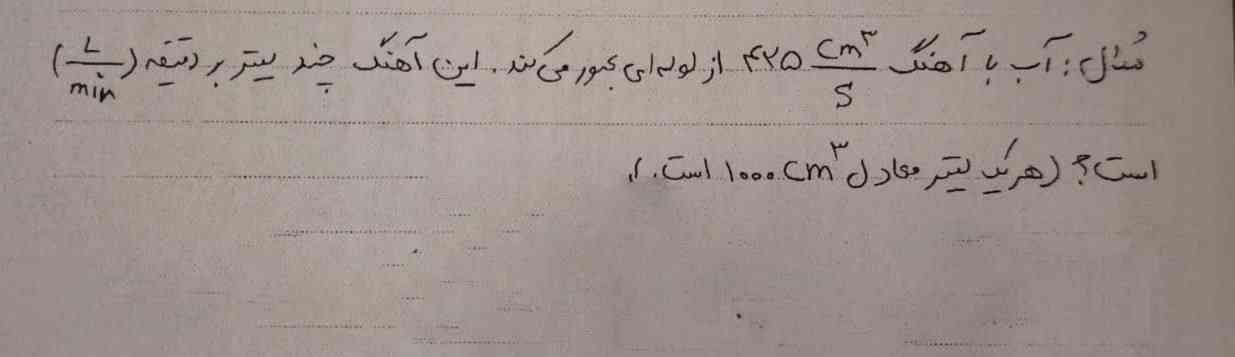 مثال: آب با آهنگ ۴۲۵ cm³/s از لوله‌ای عبور می‌کند. این آهنگ چند لیتر بر دقیقه (L/min)
است؟ (هر یک لیتر معادل ۱۰۰۰ cm³ است.)